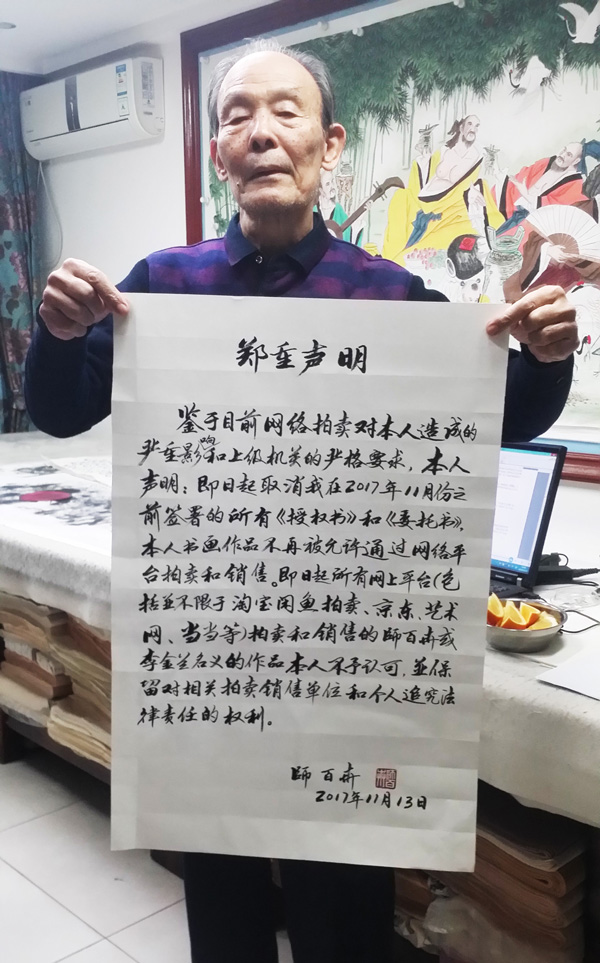 郑重声明
鉴于目前网络拍卖对本人造成的
严重影响和上级机关的严格要求，本人
声明：即日起取消我在2017年11月份之
前签署的所有《授权书》和《委托书》，
本人书画作品不再被允许通过网络平
台拍卖和销售。即日起所有网上平台(包
括並不限于淘宝闲鱼拍卖、京东、艺术
网、当当等)拍卖和销售的師百卉或
李金兰名义的作品本人不予认可，並保
留对相关拍卖销售单位和个人追究法
律责任的权利。
師百卉
2017年11月13日